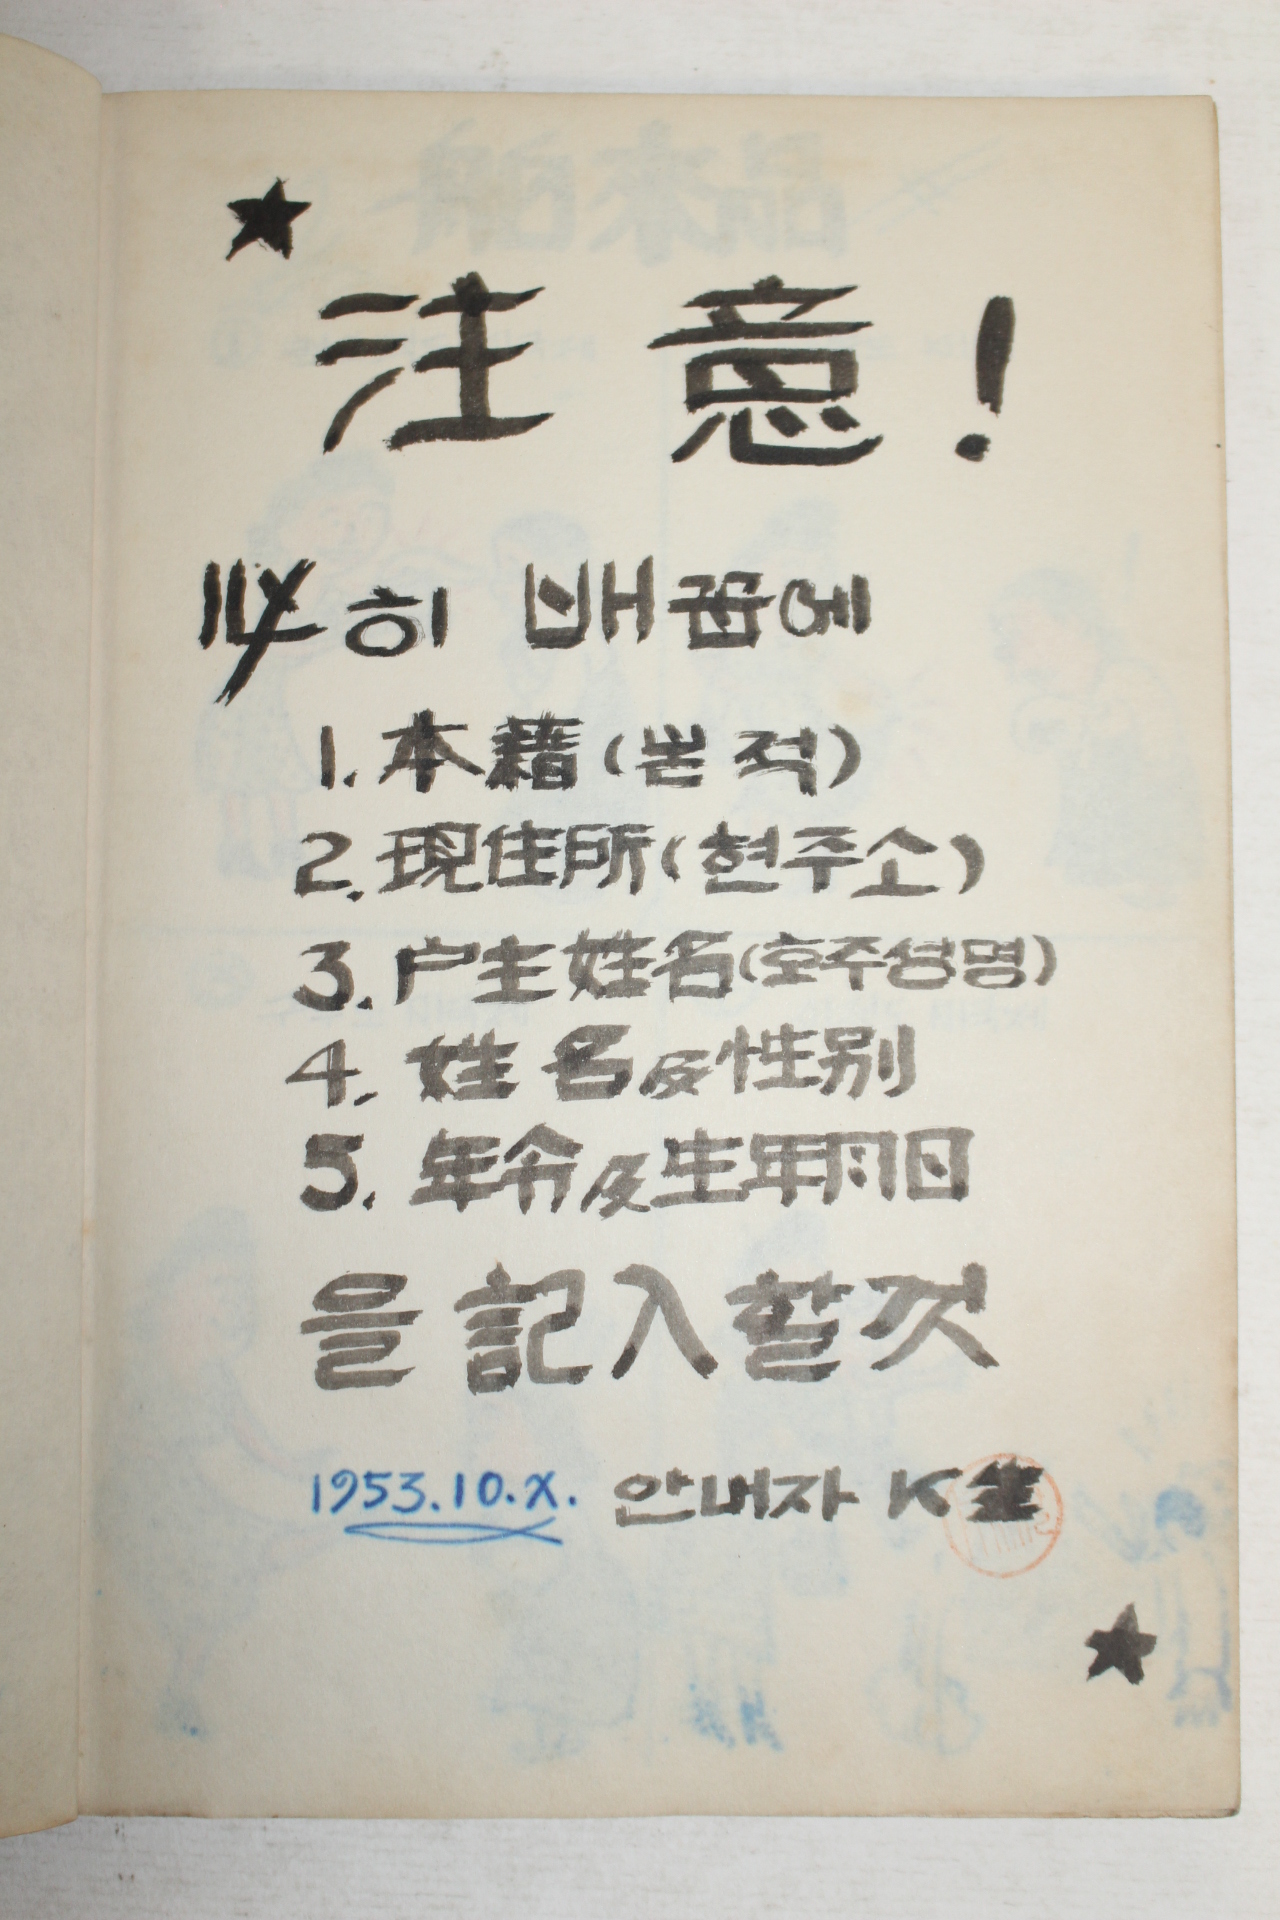 ★
注意!
必히 배꼽에
1. 本籍(본적)
2. 現住所(현주소)
3. 户主姓名(호주성명)
4. 姓名及性別
5. 年令及生年月日
을 記入할것
1953.10.X. 안내자 K生
★